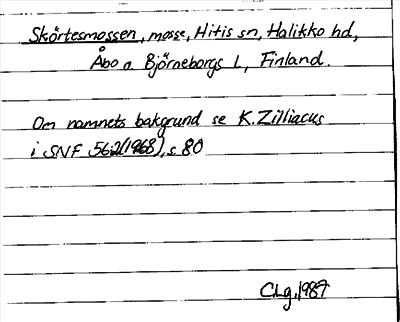 Skörtesmossen, mosse, Hitis sn, Halikko hd,
Åbo o. Björneborgs L, Finland.
Om namnets bakgrund se K. Zilliacus
i SNF 56:2(1968), s. 80
CLg, 1987